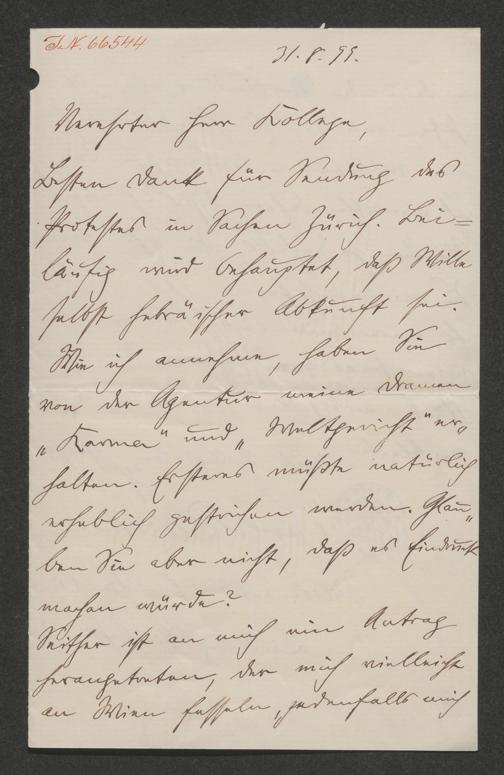 J.N. 66544
31.8.99.
Verehrter Herr Kollege,
Besten Dank für Sendung des
Protestes in Sachen Zürich. Bei=
läufig wird behauptet, daß Wille
selbst hebräischer Abkunft sei.
Wie ich annehme, haben Sie
von der Agentur meine Dramen
„Karma" und „Weltgericht" er„
halten. Ersteres müßte natürlich
erheblich gestrichen werden. Glau„
ben Sie aber nicht, daß es Eindruck
machen würde?
Seither ist an mich ein Antrag
herangetreten, der mich vielleicht
an Wien fesseln, jedenfalls mich